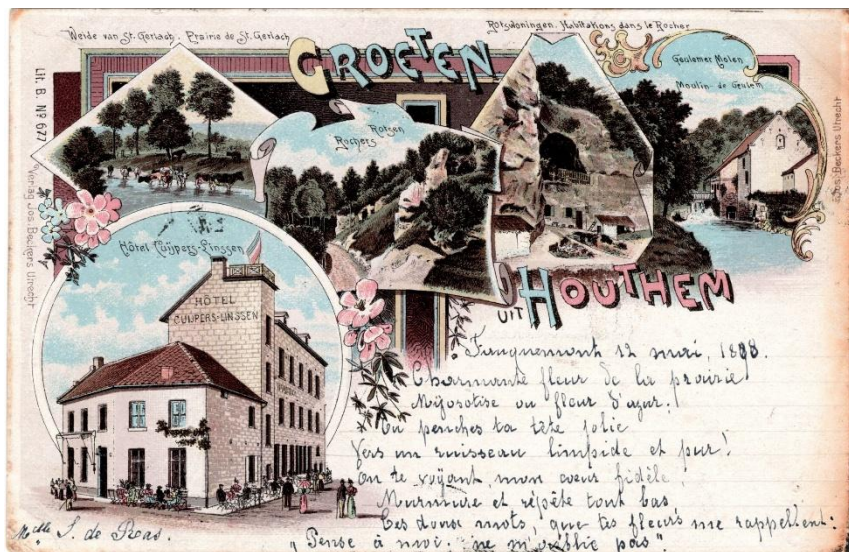 Weide van St. Gerlach. Prairie de St. Gerlach
GROETEN
Rotswoningen. Habitations dans le Rocher
Geulemer Molen
Moulin de Geulem
Lit. B. No 677
Verlag Jos. Beckers Utrecht
Rotsen
Rochers
Jos. Beckers Utrecht
Hôtel Cuijpers-Linssen
HÔTEL
CUIJPERS-LINSSEN
UIT HOUTHEM
Fauquemont 12 mai, 1898.
Charmante fleur de la prairie
Myosotise ou fleur d'azur!
Tu penches ta tête jolie
Vers un ruisseau limpide et pur!
En te voyant mon cœur fidèle,
Murmure et répète tout bas
Ces doux mots, que tes fleurs me rappellent:
"Pense à moi: ne m'oublie pas".
Melle S. de